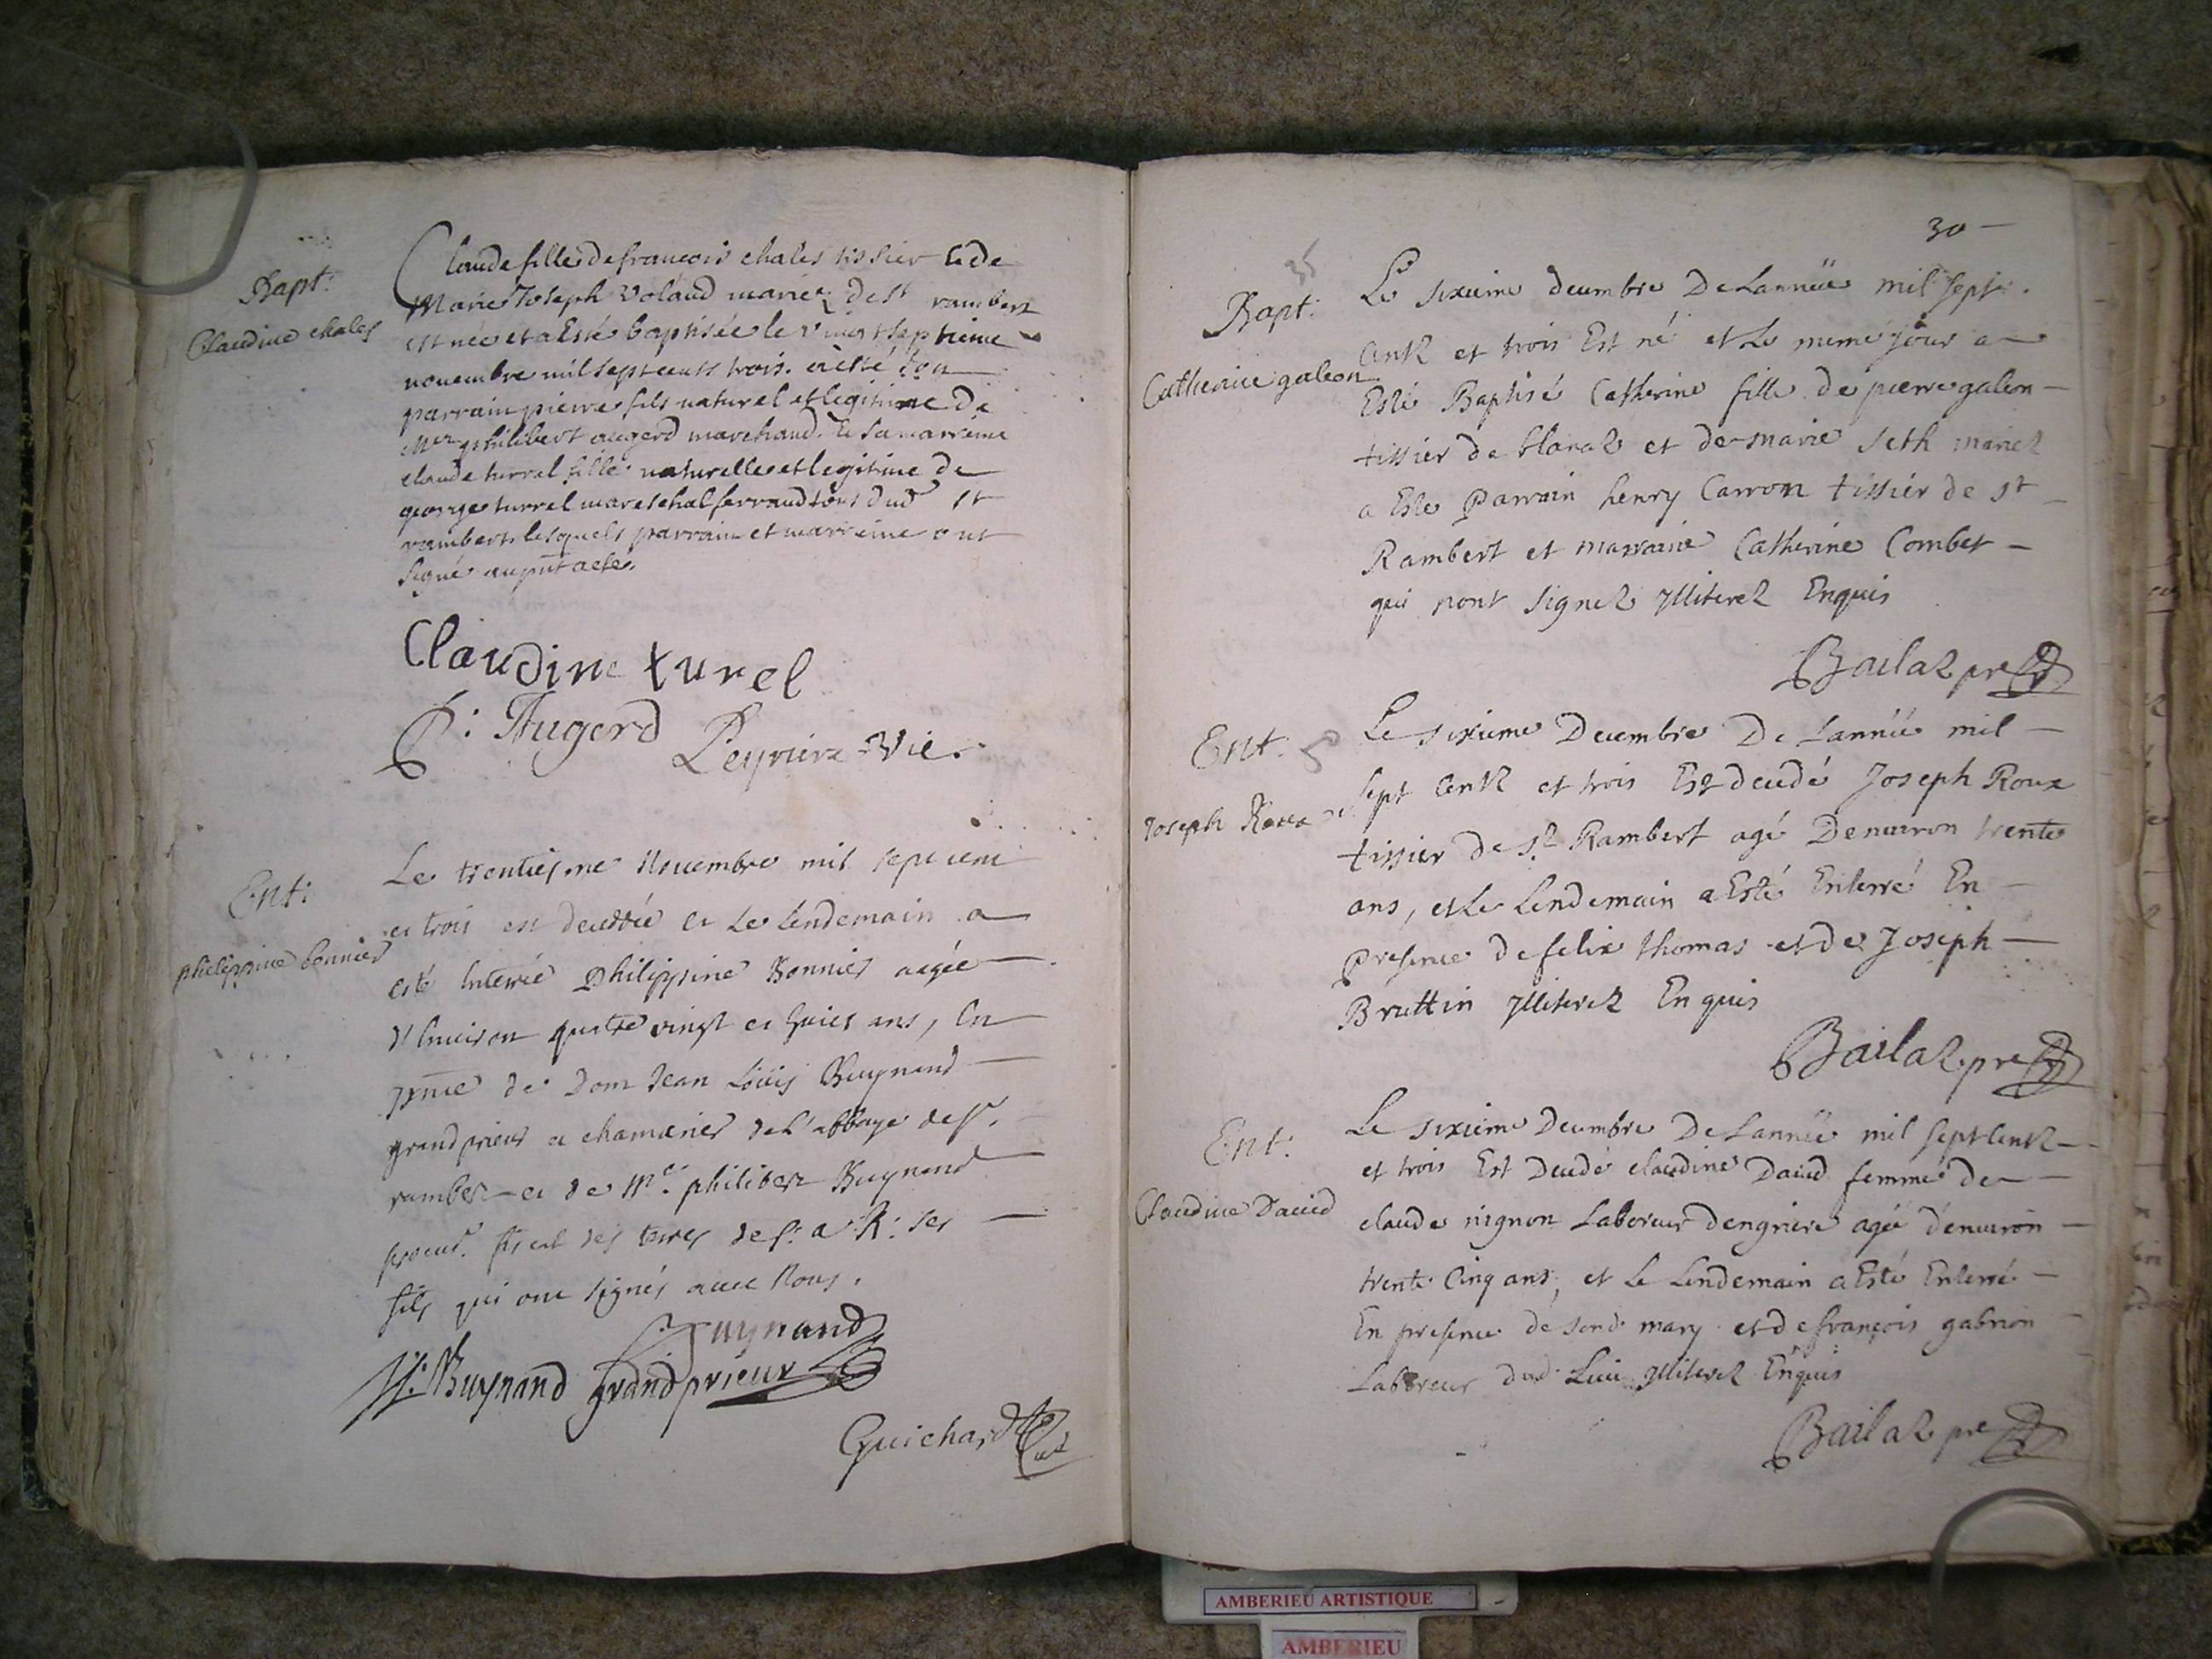 Bapt:
Claudine chales
Claude fille de francois chales tissier et de
Marie Joseph Volaud mariez de st rambert
est née et a esté baptisée le vingt septieme
nouembre mil sept cents trois. a esté son
parrain pierre fils naturel et legitime de
Mer philibert augerd marchand. et sa marreine
claude turrel fille naturelle et legitime de
george turrel mareschal ferrand tous dud st
rambert lesquels parrain et marreine ont
signé au pnt acte.
Claudine turel
P: Augerd
Peyriere vic.
Ent:
philippine bonnier
Le trentiesme Nouembre mil sept cent
et trois est decedée et Le Lendemain a
esté Enterrée Philippine Bonnier aagée
d'Enuiron quatre vingt et huict ans, En
pnce de Dom Jean Loüis Buynand
grand prieur et chamarier de l'abbaye de st.
rambert et de Me. philibert Buynand
procur. fiscal des terres de s: a: R: ses
fils qui ont signés auec Nous.
Buynand
P: Buynand grand prieur
Guichard
30
Bapt:
Catherine galeon
Le sixieme decembre De Lannüe mil sept
Centz et trois Est né et Le meme jour a
Esté Baptisé Catherine fille de pierre galeon
tissier de blanaz et de marie Seth mariez
a Este Parrain henry Carron tissier de st
Rambert et marraine Catherine Combet
qui nont signez ylliterez Enquis
Bailaz pre
Ent.
Joseph Roux
Le sixieme Decembre De Lannüe mil
sept Centz et trois Est decedé Joseph Roux
tissier de st Rambert agé Denuiron trente
ans, et Le Lendemain a Esté Enterré En
Presence de felix thomas et de Joseph
Bruttin ylliterez Enquis
Bailaz pre
Ent:
Claudine Dauid
Le sixieme Decembre De Lannüe mil sept Centz
et trois Est Decedé claudine Dauid femme de
claude nignon Laboreur dengriere agée denuiron
trente Cinq ans, et Le Lendemain a Esté Enterré
En presence de sond mary et de françois gabrion
Laboreur dud Lieu ylliterez Enquis
Bailaz pre
AMBERIEU ARTISTIQUE
AMBERIEU